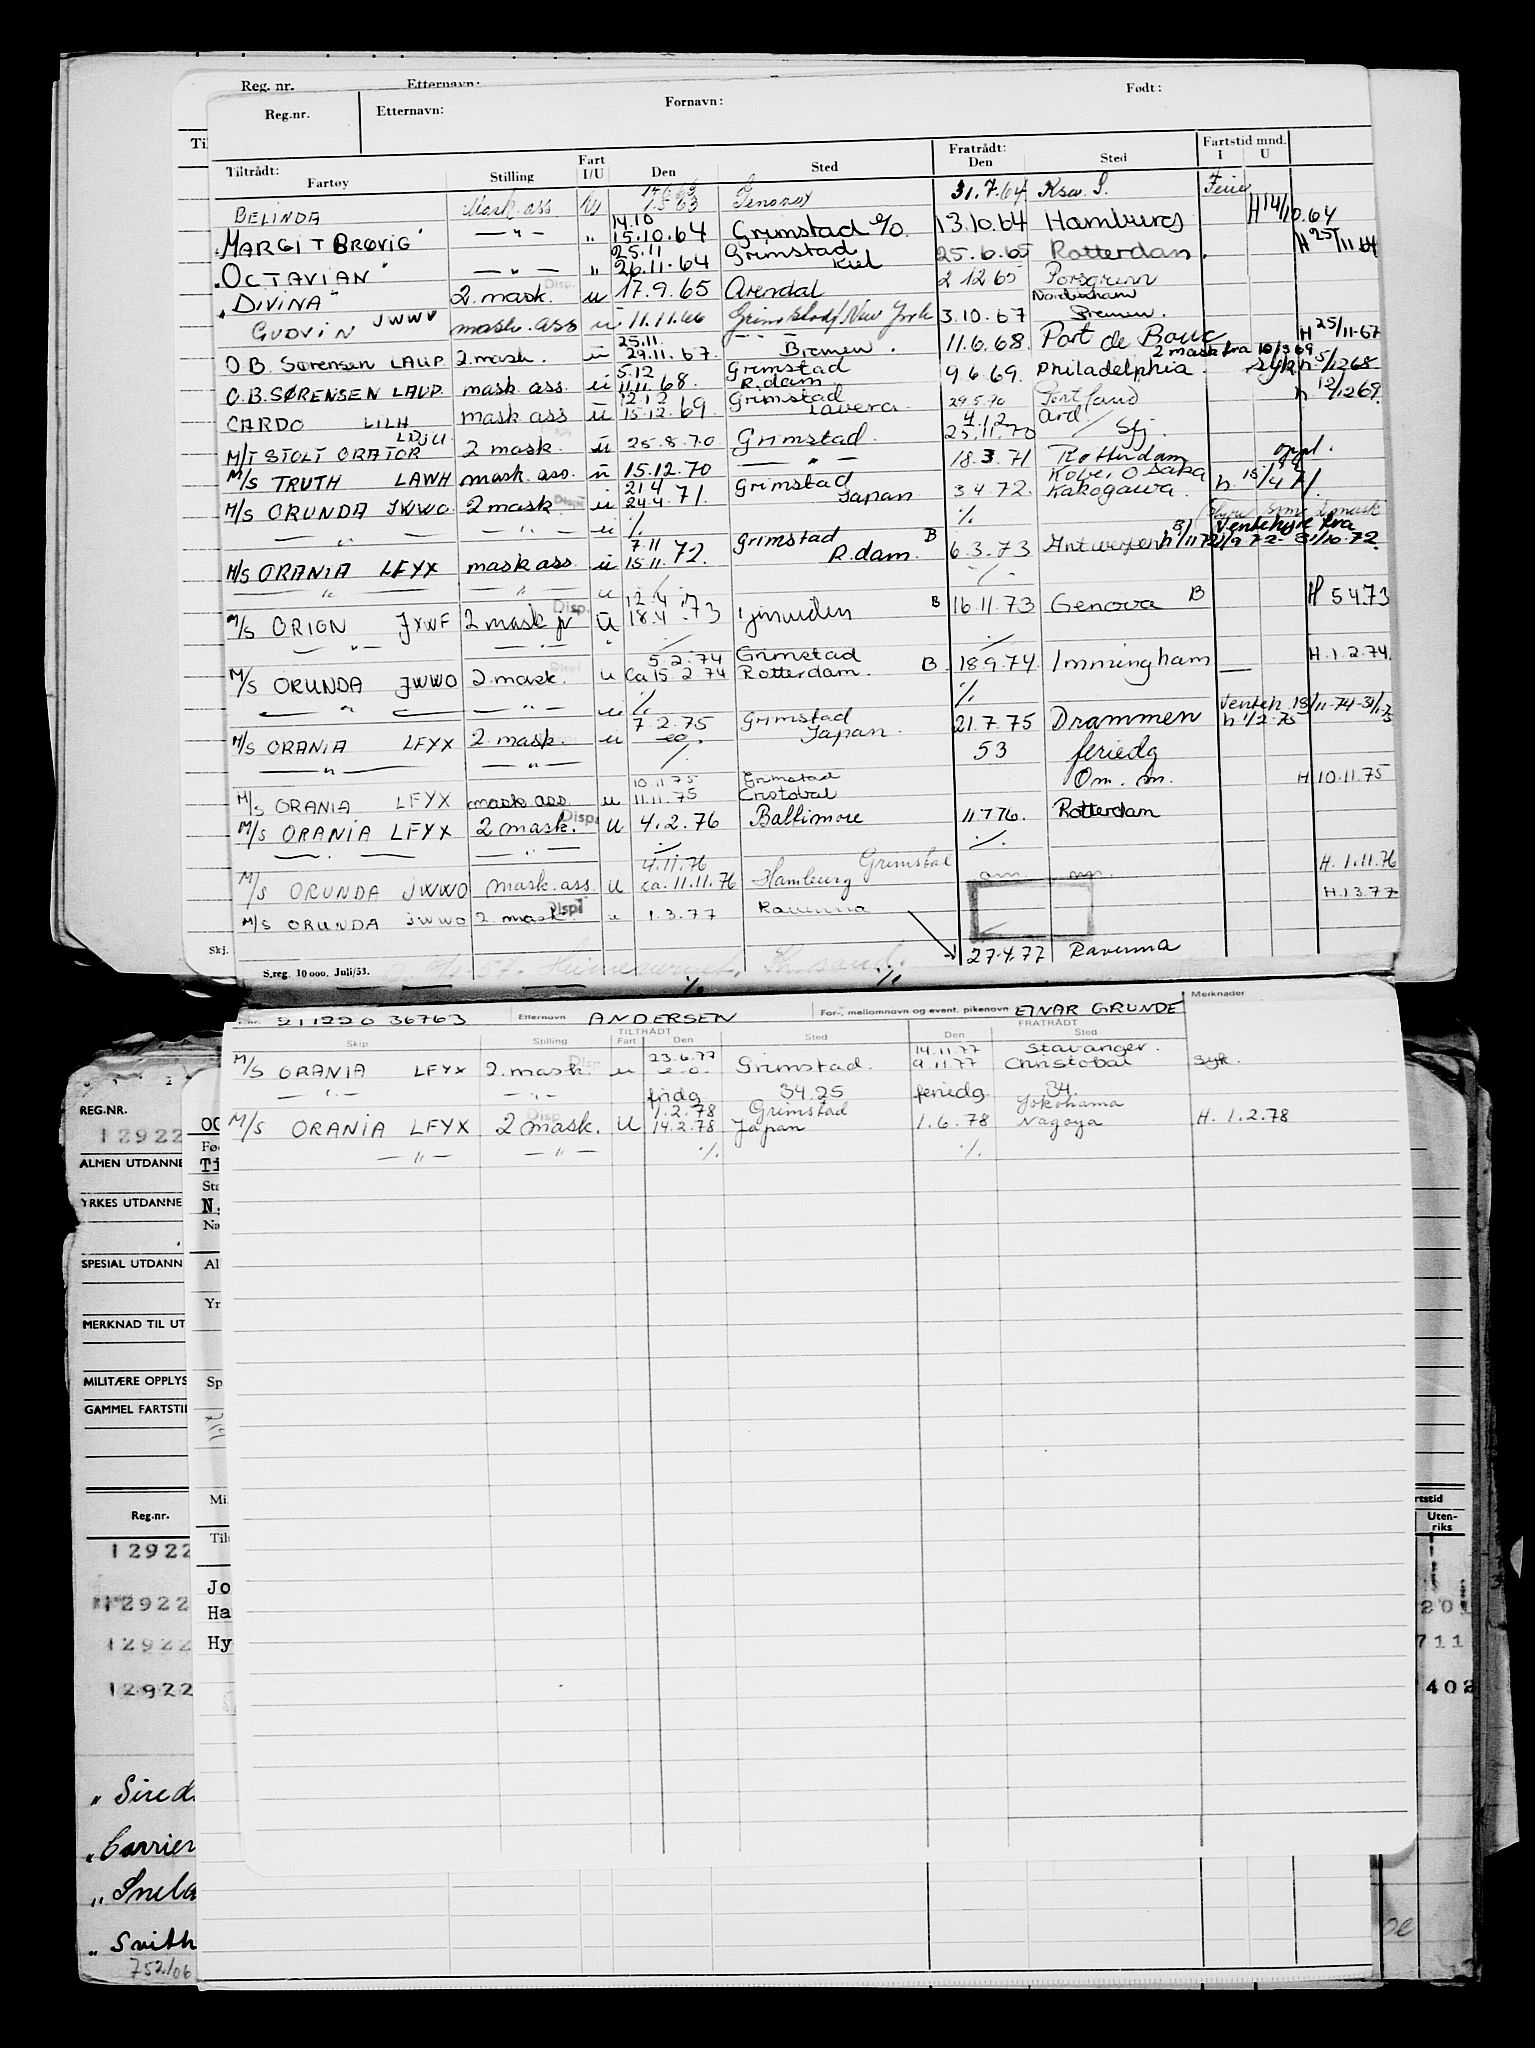 Reg. nr. Etternavn:
Reg.nr. Etternavn: Fornavn: Født:
Tiltrådt: Fratrådt: Fartstid mnd.
Fartøy Stilling Fart I/U Den Sted Den Sted I U
BELINDA Mask.ass 1.5.63 31.7.64 Ksa. S. Ferie
14.10 H 14/10.64
"MARGIT BRØVIG" — " — " 15.10.64 Grimstad 13.10.64 Hamburg
25.11 Grimstad H 25/11 64
"OCTAVIAN" — " — " 26.11.64 Kiel 25.6.65 Rotterdam.
"DIVINA" 2 mask. u 17.9.65 Arendal 2 12 65 Porsgrunn
Nordenham
GUDVIN JWWV mask. ass u 11.11.66 Grimstad/New York 3.10.67 Bremen.
25.11. H 25/11-67
O.B. Sørensen LAUP 2 mask. u 29.11.67. Bremen. 11.6.68. Port de Bouc
5.12 Grimstad 2 mask fra 10/3 69
O.B. SØRENSEN LAUP mask ass. u 11.11 68. R.dam 9 6.69. Philadelphia. syk h. 5/12 68
12.12 Grimstad h 12/12 69.
CARDO LILH mask ass u 15.12.69 Tavera. 29.5.70 Portland
LDJU 4.12 ard.
M/T STOLT ORATOR 2 mask. u 25.8.70 Grimstad. 25.11.70 / Sfj.
M/S TRUTH LAWH mask ass. u 15.12.70 — " — 18.3.71 Rotterdam oppl.
21 4 Grimstad Kobe, Osaka
M/S ORUNDA JWWO 2 mask Displ u 24.4.71. Japan 3 4.72. Kakogawa. h. 15/4 71.
— " — — " — u % %
7.11 Grimstad B Ventehyre fra
M/S ORANIA LFYX mask ass. u 15.11.72. R.dam. 6.3.73 Antwerpen h 1/11 72 1/9 72- 31/10-72.
— " — — " — u %
12.4
M/S ORION JXWF 2 mask jr Disp. u 18.4.73 Ijmuiden B 16.11.73 Genova B H 5 4.73
— " — — " — " % %
5.2.74 Grimstad H.1.2.74.
M/S ORUNDA JWWO 2 mask. Displ u Ca 15 2 74 Rotterdam. B. 18.9.74. Immingham —
— " — — " — u % % Venteh 18/11-74-31/1.75
7.2.75 Grimstad h 1/2.75
M/S ORANIA LFYX 2 mask. u eo. Japan. 21.7.75 Drammen
— " — — " — % 53 feriedg
10.11.75 Grimstad Om. m. H 10.11.75
M/S ORANIA LFYX mask ass. u 11.11.75 Cristobal
M/S ORANIA LFYX 2 mask. Disp. u 4.2.76 Baltimore 11 7 76. Rotterdam
— " — — " — % %
4.11.76 Grimstad H. 1.11.76
M/S ORUNDA JWWO mask.ass. u ca. 11.11.76 Hamburg om m.
M/S ORUNDA JWWO 2 mask. Displ u 1.3.77 Ravenna H.1.3.77
Skj. 27.4.77 Ravenna
S.reg. 10 000. Juli/53.
% %
Merknader
211220 36763 Etternavn ANDERSEN For-, mellomnavn og event. pikenavn EINAR GRUNDE
TILTRÅDT FRATRÅDT
Skip Stilling Fart Den Sted Den Sted
23.6.77 14.11.77 Stavanger.
M/S ORANIA LFYX 2.mask. Disp u e.o. Grimstad. 9.11.77 Christobal syk.
— " — — " — fridg 34.25 feriedg 34.
1.2.78 Grimstad Yokohama
M/S ORANIA LFYX 2 mask. Disp. U 14.2.78 Japan 1.6.78 Nagoya H. 1.2.78
— " — — " — % %
REG.NR.
12922
ALMEN UTDANNE
YRKES UTDANNE
SPESIAL UTDANN
MERKNAD TIL UT
MILITÆRE OPPLYS
GAMMEL FARTSTI
Reg.nr.
12922
12922
12922
12922
Ti
N.
Na
Al
Yr
Sp
Mi
Til
Jo
Ha
Hy
rtstid
Uten-
riks
201
711
402
" Sired
" Carrier
" Snela
" Svith
752106